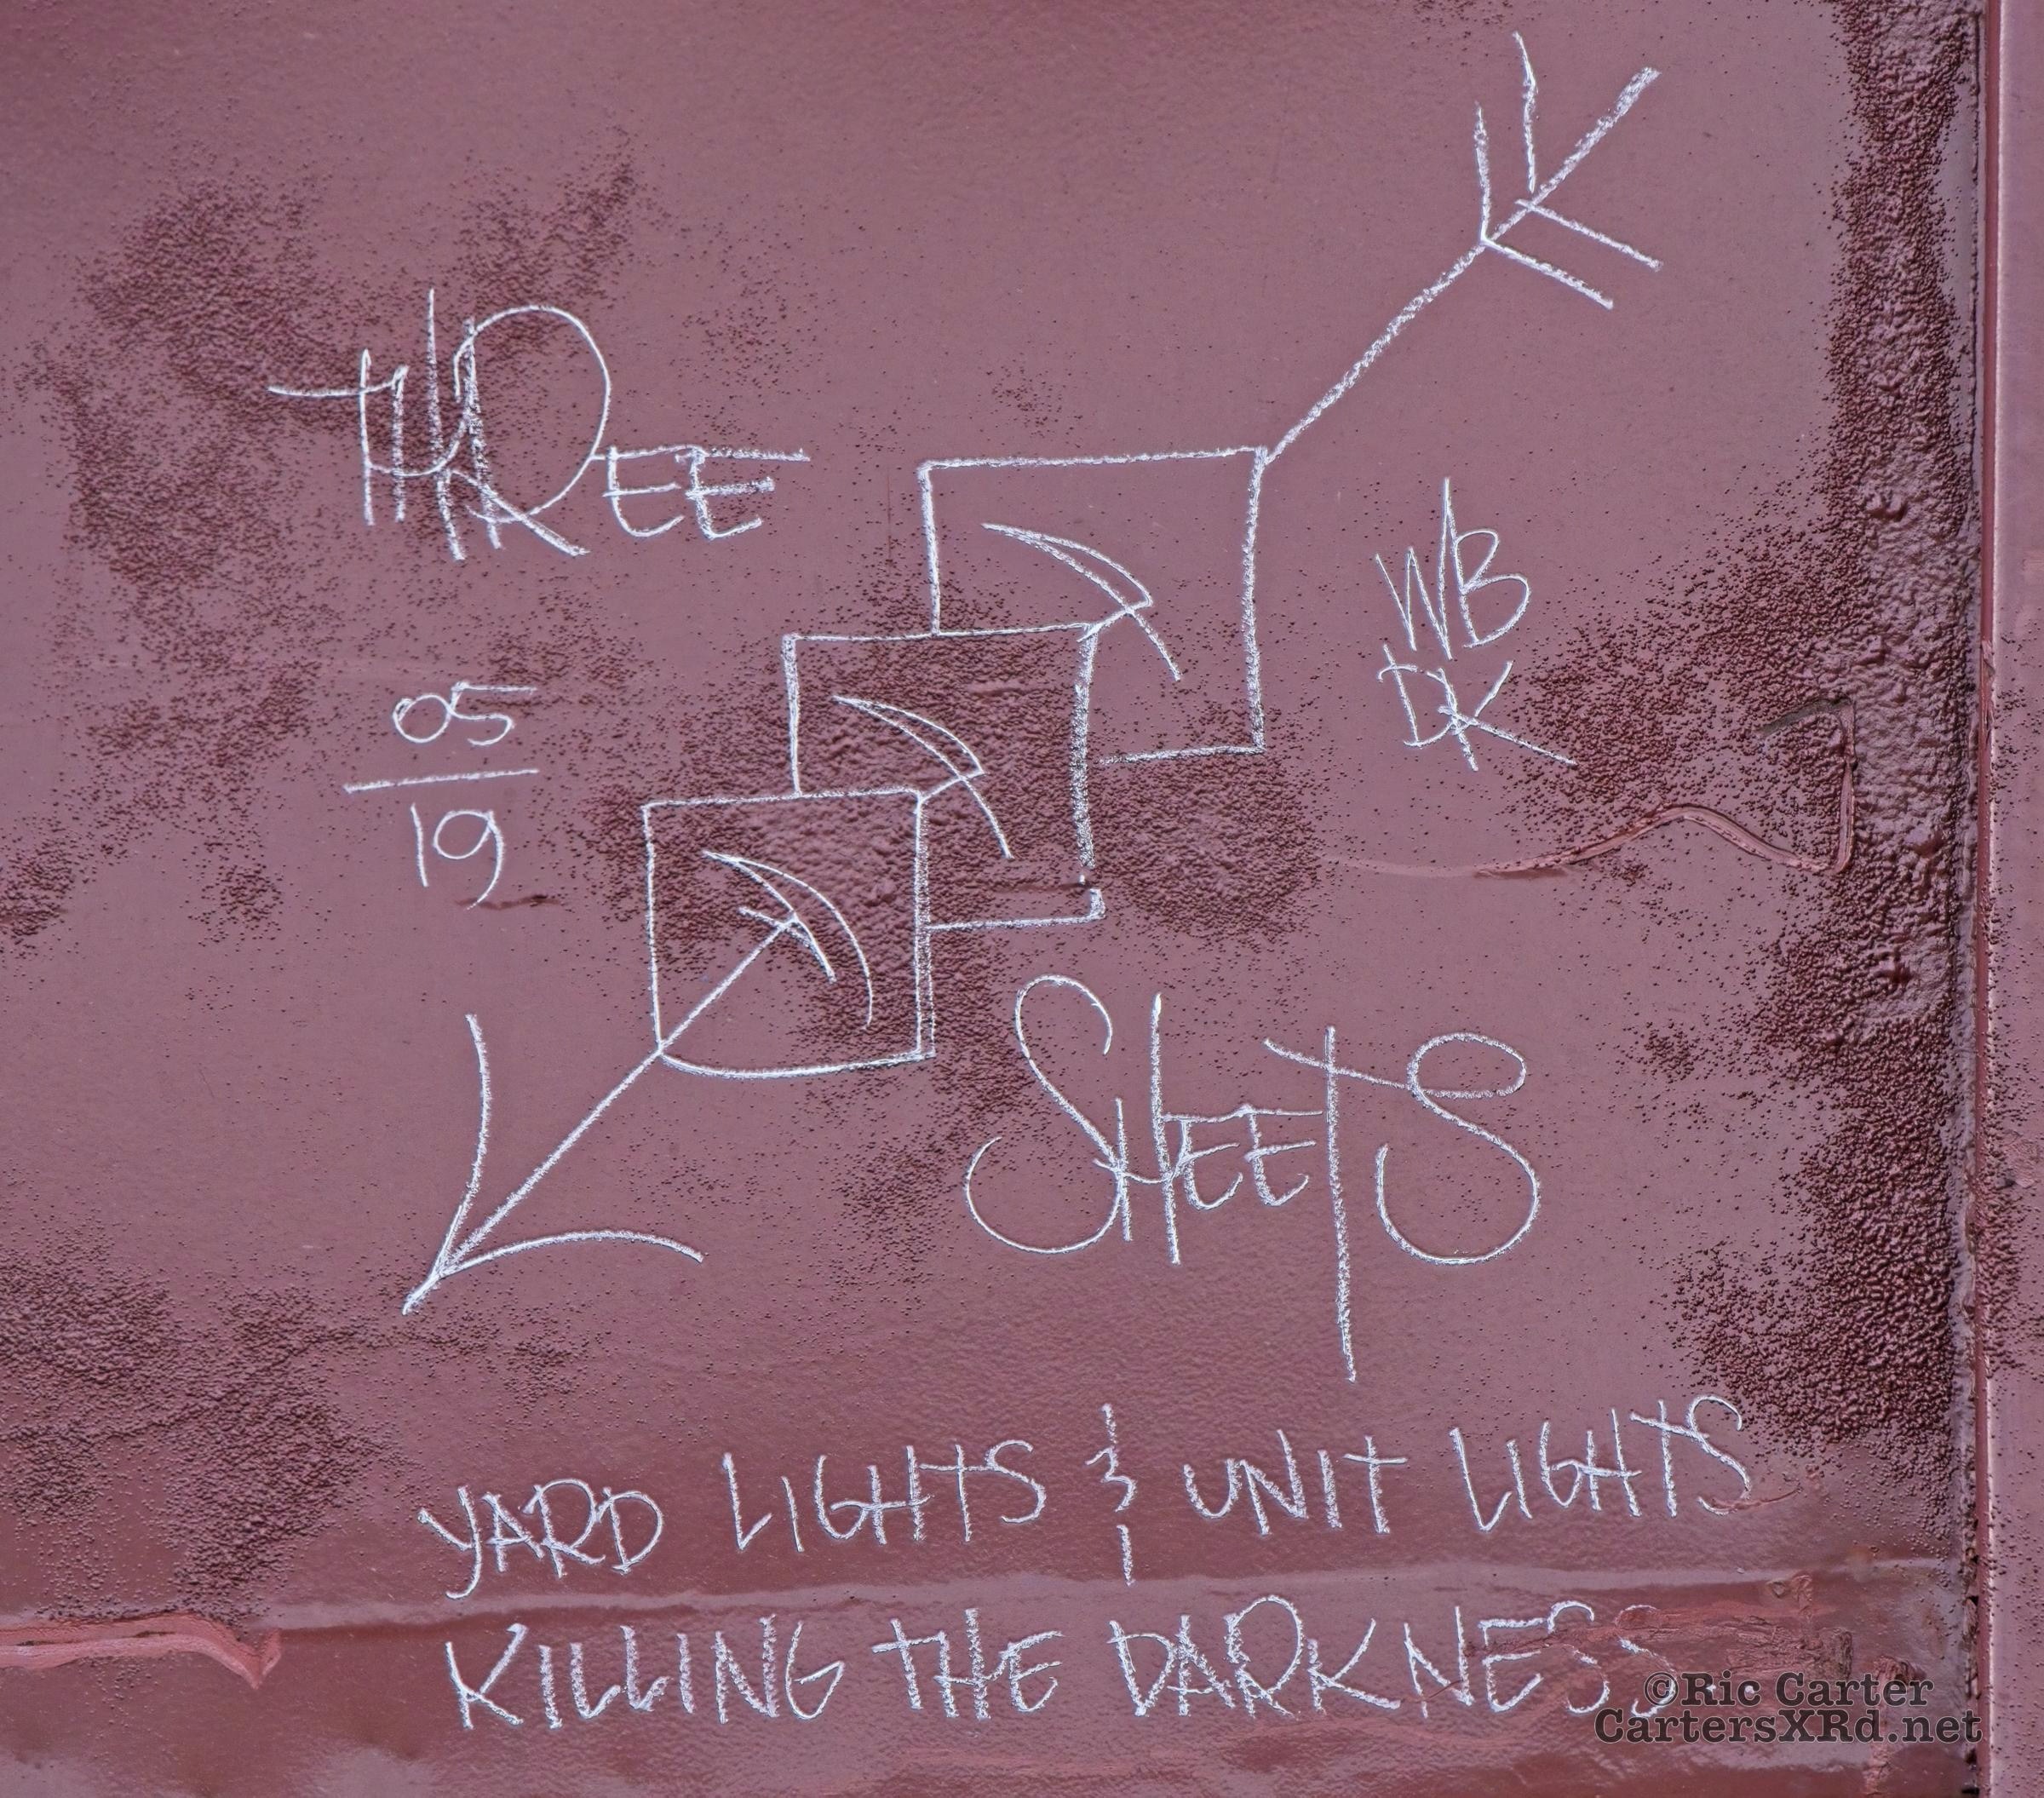 THREE
WB
DK
05
19
SHEETS
YARD LIGHTS & UNIT LIGHTS
KILLING THE DARKNESS
©Ric Carter
CartersXRd.net